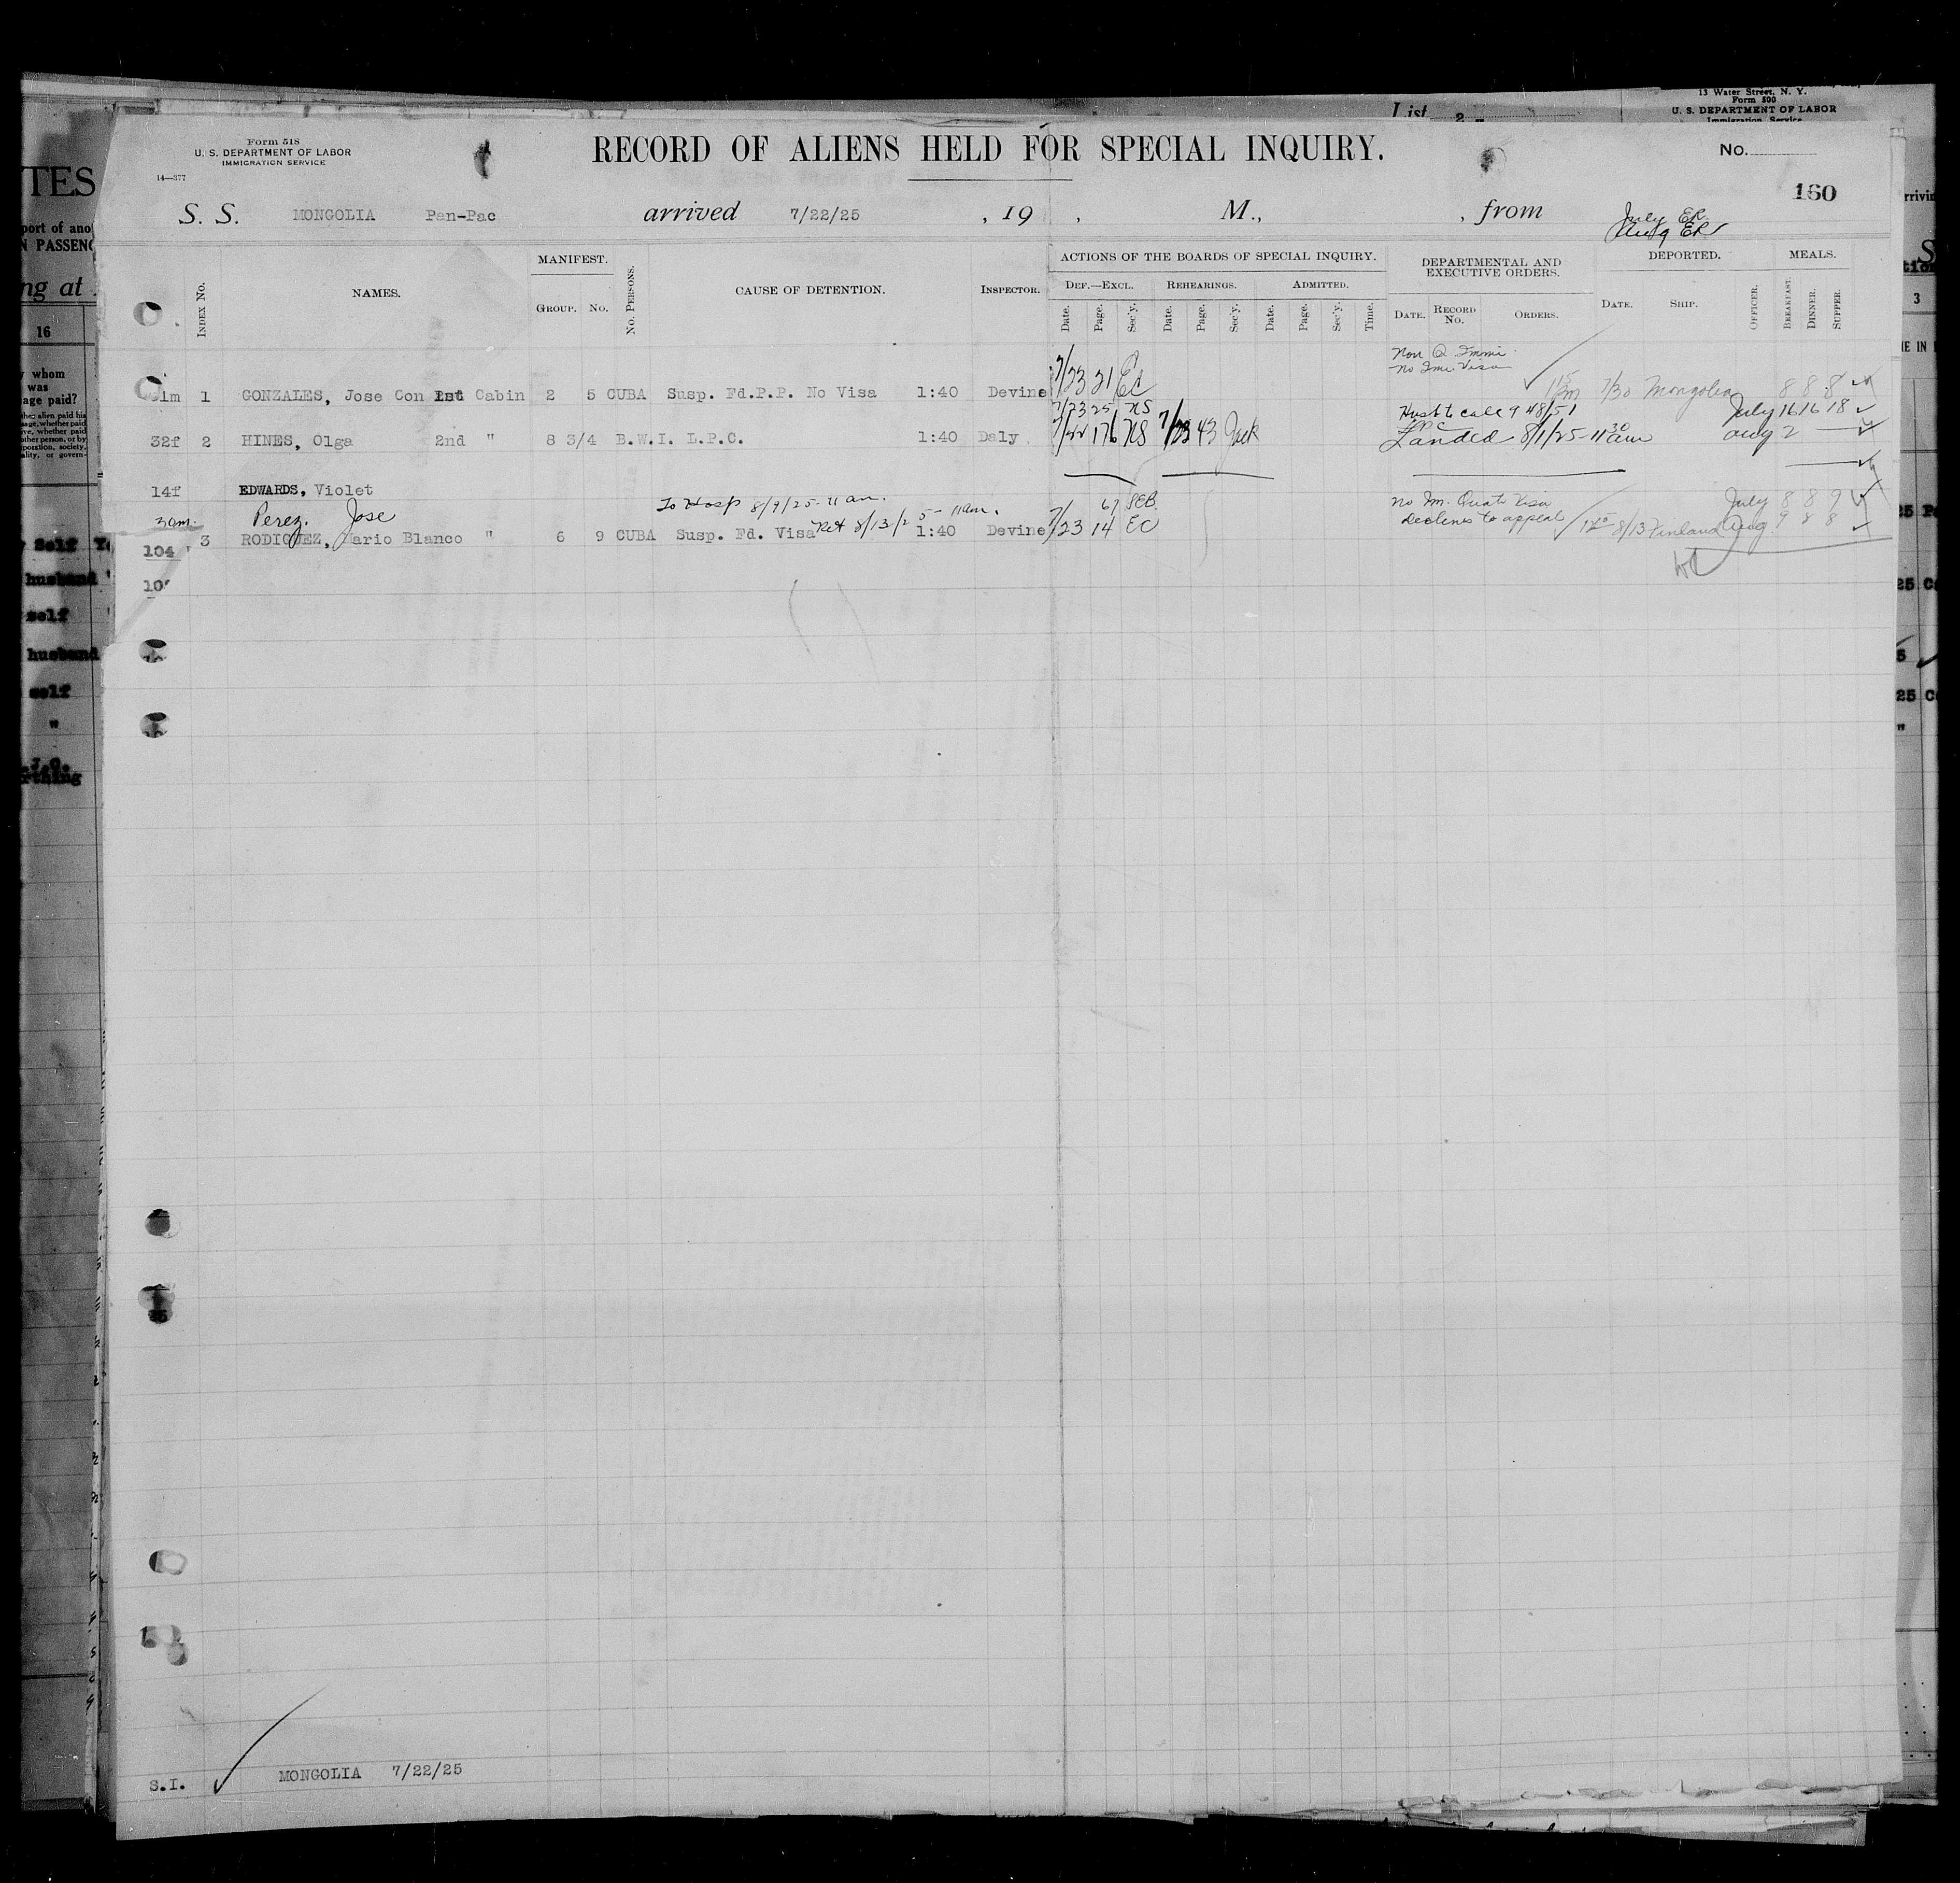 List 2
13 Water Street, N. Y.
Form 500
U. S. DEPARTMENT OF LABOR
Immigration Service
Form 518
U. S. DEPARTMENT OF LABOR
IMMIGRATION SERVICE
14—377
RECORD OF ALIENS HELD FOR SPECIAL INQUIRY.
No.
160
S. S. MONGOLIA Pan-Pac arrived 7/22/25, 19 , M., , from
July ER
Aug ER
MANIFEST. ACTIONS OF THE BOARDS OF SPECIAL INQUIRY. DEPARTMENTAL AND EXECUTIVE ORDERS. DEPORTED. MEALS.
INDEX No. NAMES. GROUP. No. No. PERSONS. CAUSE OF DETENTION. INSPECTOR. DEF.—EXCL. REHEARINGS. ADMITTED.
Date. Page. Sec'y. Date. Page. Sec'y. Date. Page. Sec'y. Time. DATE. RECORD No. ORDERS. DATE. SHIP. OFFICER. BREAKFAST. DINNER. SUPPER.
Non Q Immi
No Imi Visa
1m 1 GONZALES, Jose Con 1st Cabin 2 5 CUBA Susp. Fd.P.P. No Visa 1:40 Devine 7/23 21 EC 7/30 Mongolia 8 8 8
7/23 25 NS Husb to call 9 48/51 July 16 16 18
32f 2 HINES, Olga 2nd " 8 3/4 B.W.I. L.P.C. 1:40 Daly 7/22 176 NS 7/23 43 LPC Landed 8/1/25 11 30 am Aug 2
14f EDWARDS, Violet
To Hosp 8/9/25-11 am. 67 SEB No Im. Quota Visa July 8 8 9
Perez. Jose Ret 8/13/25-11am. Declines to appeal Aug. 9 8 8
104 3 RODIGUEZ, Mario Blanco " 6 9 CUBA Susp. Fd. Visa 1:40 Devine 7/23 14 EC 8/13 Finland
S.I. MONGOLIA 7/22/25
TES
port of
N PASSEN
ng at
16
whom
was
age paid?
Self
husband
self
husband
self
"
rthing
3